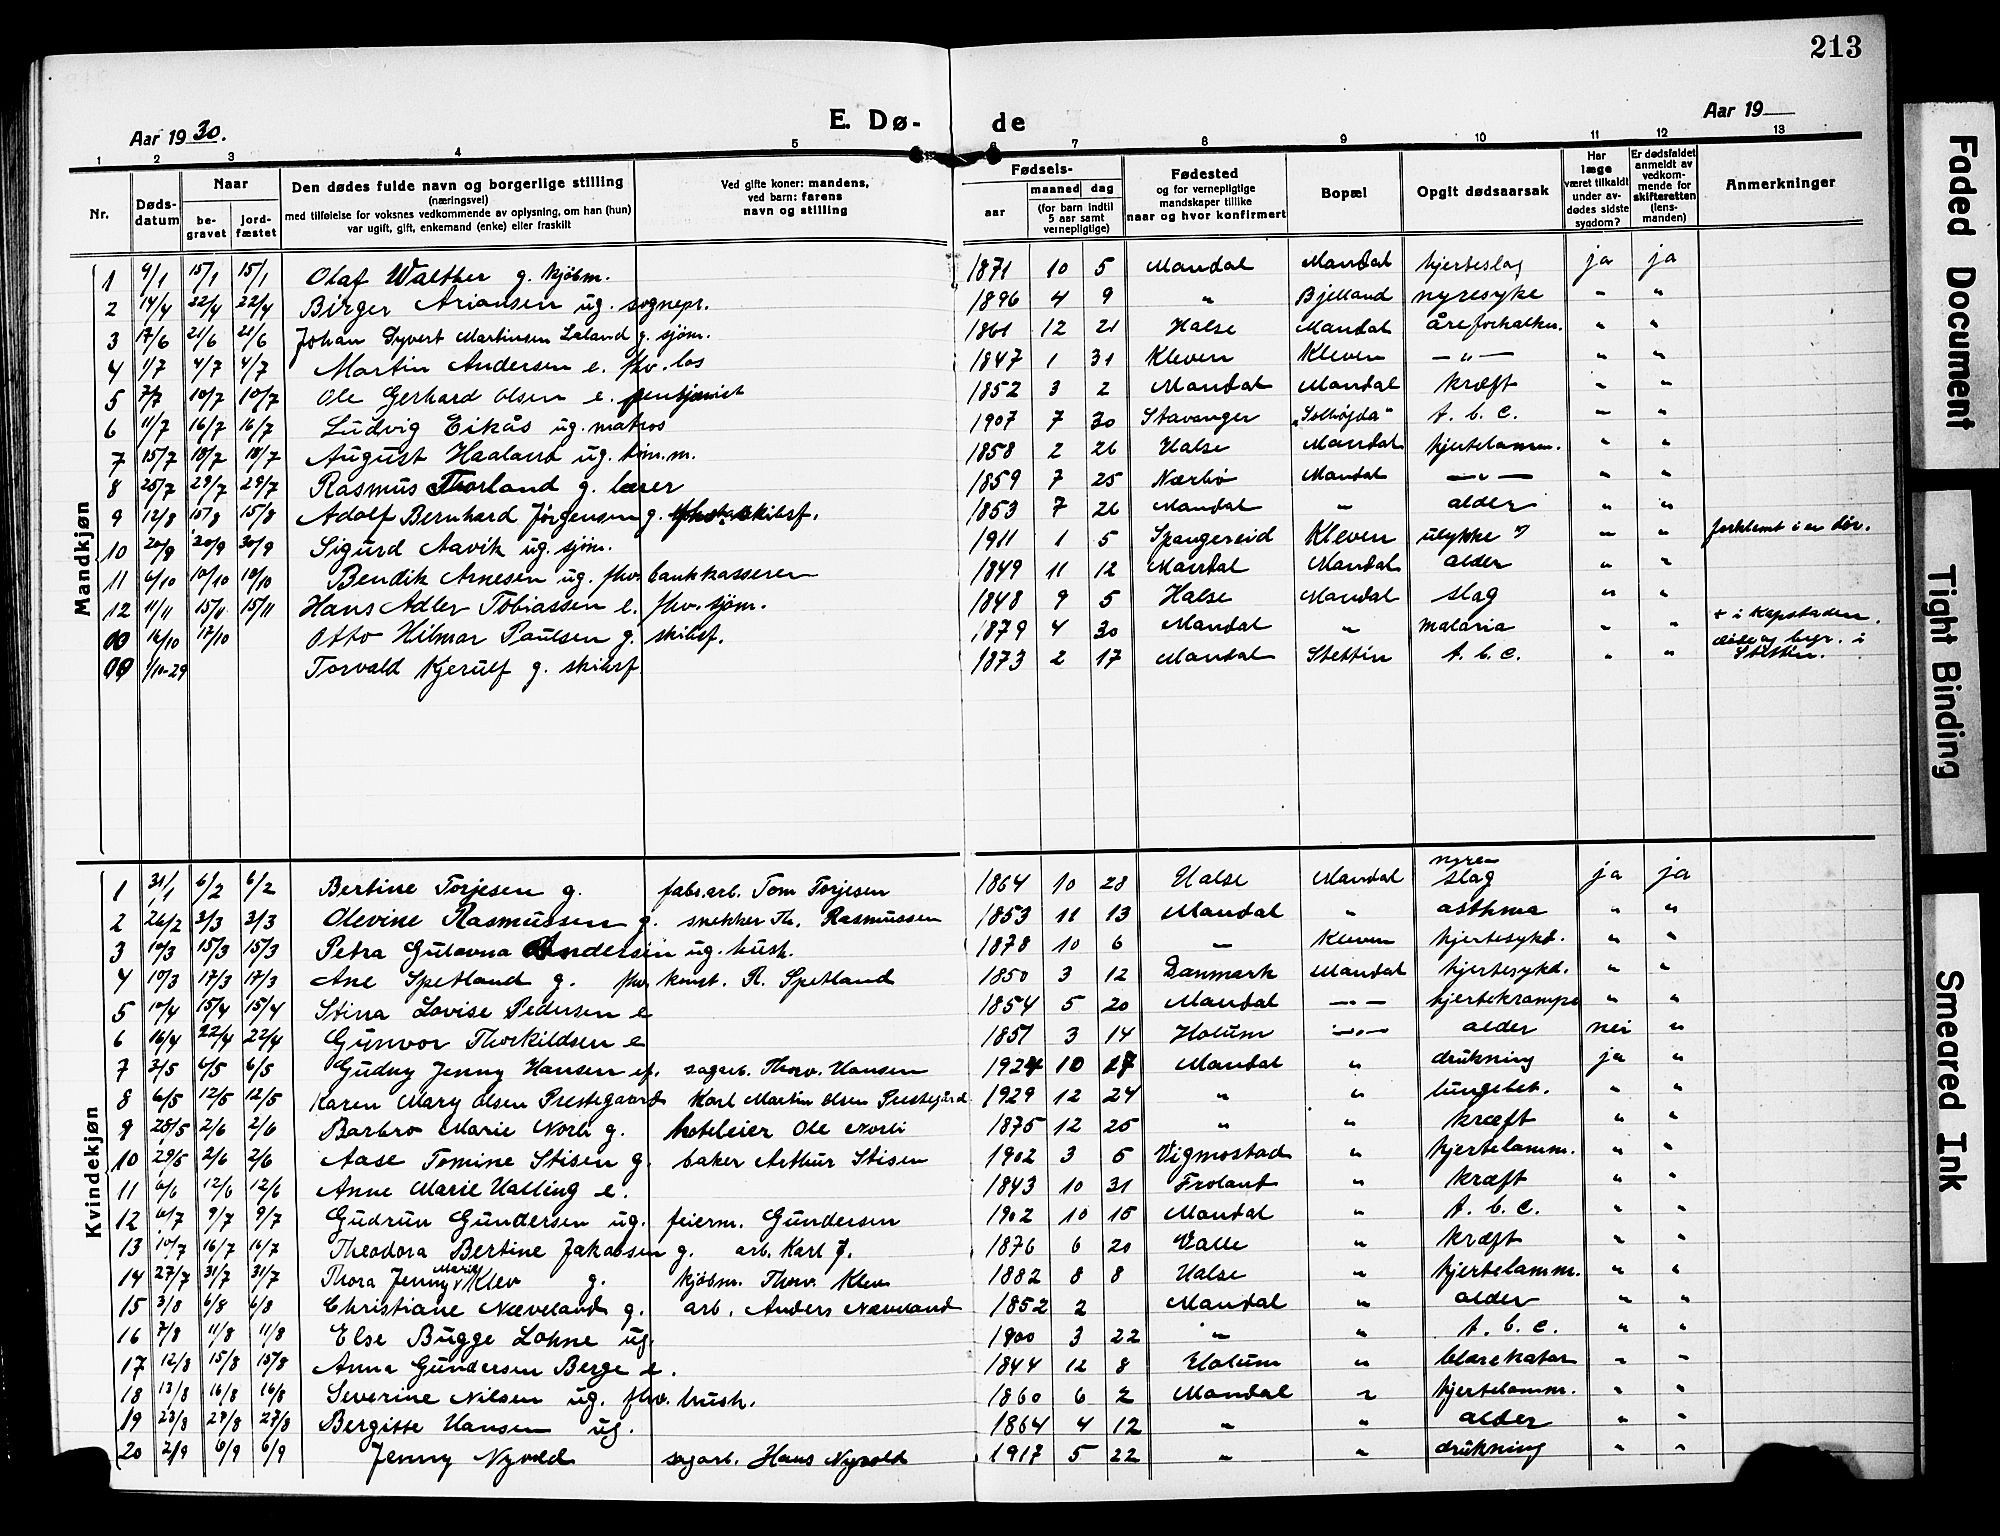 213
Aar 1930.
E. Dø-
de
Aar 19
1 2 3 4 5 6 7 8 9 10 11 12 13
Nr.
Døds-datum
Naar
be-gravet
jord-fæstet
Den dødes fulde navn og borgerlige stilling
(næringsvei)
med tilføielse for voksnes vedkommende av oplysning, om han (hun)
var ugift, gift, enkemand (enke) eller fraskilt
Ved gifte koner: mandens,
ved barn: farens
navn og stilling
Fødsels-
aar
maaned dag
(for barn indtil
5 aar samt
vernepligtige)
Fødested
og for vernepligtige
mandskaper tillike
naar og hvor konfirmert
Bopæl
Opgit dødsaarsak
Har
læge
været tilkaldt
under av-
dødes sidste
sygdom?
Er dødsfaldet
anmeldt av
vedkom-
mende for
skifteretten
(lens-
manden)
Anmerkninger
Mandkjøn
1 9/1 15/1 15/1 Olaf Walther g. kjøbm. 1871 10 5 Mandal Mandal hjerteslag ja ja
2 14/4 22/4 22/4 Birger Ariansen ug. sognepr. 1896 4 9 " Bjelland nyresyke " "
3 17/6 21/6 21/6 Johan Syvert Martinsen Laland g. sjøm. 1861 12 21 Halse Mandal åreforkalkn. " "
4 1/7 4/7 4/7 Martin Andersen e. fhv. los 1847 1 31 Kleven Kleven — " — " "
5 7/7 10/7 10/7 Ole Gerhard Olsen e. pensjonist 1852 3 2 Mandal Mandal kræft " "
6 11/7 16/7 16/7 Ludvig Eikås ug. matros 1907 7 30 Stavanger "Solhøgda" t. b. c. " "
7 15/7 18/7 18/7 August Haaland ug. tøm.m. 1858 2 26 Halse Mandal hjertelamm. " "
8 25/7 29/7 29/7 Rasmus Thorland g. lærer 1859 7 25 Nærbø Mandal — " — " "
9 12/8 15/8 15/8 Adolf Bernhard Jørgensen g. skibsf. 1853 7 26 Mandal " alder " "
10 20/9 20/9 30/9 Sigurd Aavik ug. sjøm. 1911 1 5 Spangereid Kleven ulykke " " forklemt i en dør.
11 6/10 10/10 10/10 Bendik Arnesen ug. fhv. bankkasserer 1849 11 12 Mandal Mandal alder " "
12 11/11 15/11 15/11 Hans Adler Tobiassen e. fhv. sjøm. 1848 9 5 Halse Mandal slag " "
00 16/10 17/10 Otto Hilmar Paulsen g. skibsf. 1879 4 30 Mandal " malaria " " + i Kapstaden.
00 1/10-29 Torvald Kjerulf g. skibsf. 1873 2 17 Mandal Stettin t. b. c. " " døde og begr. i Stettin.
Kvindekjøn
1 31/1 6/2 6/2 Bertine Torjesen g. fabr.arb. Tom Torjesen 1864 10 28 Halse Mandal nyreslag ja ja
2 26/2 3/3 3/3 Olevine Rasmussen g. snekker Th. Rasmussen 1853 11 13 Mandal " asthma " "
3 10/3 15/3 15/3 Petra Gulovna Andersen ug. hush. 1878 10 6 " Kleven hjertesykd. " "
4 10/3 17/3 17/3 Ane Spetland g. fhv. konst. R. Spetland 1850 3 12 Danmark Mandal hjertesykd. " "
5 10/4 15/4 15/4 Stina Lovise Pedersen e 1854 5 20 Mandal — " — hjertekrampe " "
6 16/4 22/4 22/4 Gunvor Thorkildsen e 1851 3 14 Holum — " — alder nei "
7 3/5 6/5 6/5 Gudny Jenny Hansen sagarb. Thorv. Hansen 1924 10 27 Mandal " drukning ja "
8 6/5 12/5 12/5 Karen Mary Olsen Prestegaard Karl Martin Olsen Prestegård 1929 12 24 " " lungebet. " "
9 28/5 2/6 2/6 Barbro Marie Norli g. hoteleier Ole Norli 1875 12 25 " " kræft " "
10 29/5 2/6 2/6 Aase Tomine Stisen g. baker Arthur Stisen 1902 3 5 Vigmostad " hjertelamm. " "
11 6/6 12/6 12/6 Anne Marie Halling e. 1843 10 31 Froland " kræft " "
12 6/7 9/7 9/7 Gudrun Gundersen ug. feierm. Gundersen 1902 10 15 Mandal " t. b. c. " "
13 10/7 16/7 16/7 Theodora Bertine Jakobsen g. arb. Karl J. 1876 6 20 Valle " kræft " "
14 27/7 31/7 31/7 Thora Jenny Marie Klev g. kjøbm. Thorv. Klev 1882 8 8 Halse " hjertelamm. " "
15 3/8 6/8 6/8 Christiane Næveland g. arb. Anders Næveland 1852 2 Mandal " alder " "
16 7/8 11/8 11/8 Else Bugge Lohne ug. 1900 3 22 " " t. b. c. " "
17 12/8 15/8 15/8 Anna Gundersen Berge e. 1844 12 8 Holum " blærekatar " "
18 13/8 16/8 16/8 Severine Nilsen ug. fhv. hush. 1860 6 2 Mandal " hjertelamm. " "
19 23/8 27/8 27/8 Bergitte Hansen ug. 1864 4 12 " " alder " "
20 2/9 6/9 6/9 Jenny Nyvold sagarb. Hans Nyvold 1917 5 22 " " drukning " "
Faded Document
Tight Binding
Smeared Ink